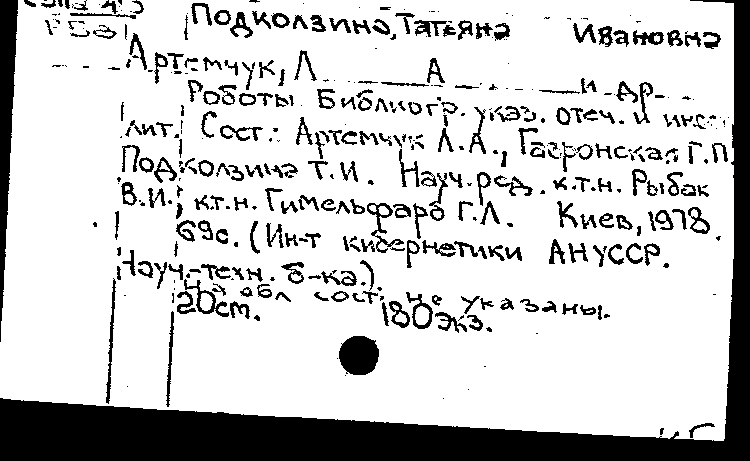 Подколзина, Татьяна Ивановна
Артемчук, Л А и др.
Роботы. Библиогр. указ. отеч. и
лит. Сост.: Артемчук Л.А., Гавронская Г.П.
Подколзина Т.И. Науч. ред. к.т.н. Рыбак
В.И., к.т.н. Гимельфарб Г.Л. Киев, 1978.
69с. (Ин-т кибернетики АН УССР.
Науч.-техн. б-ка).
На обл сост. не указаны.
20см. 180экз.